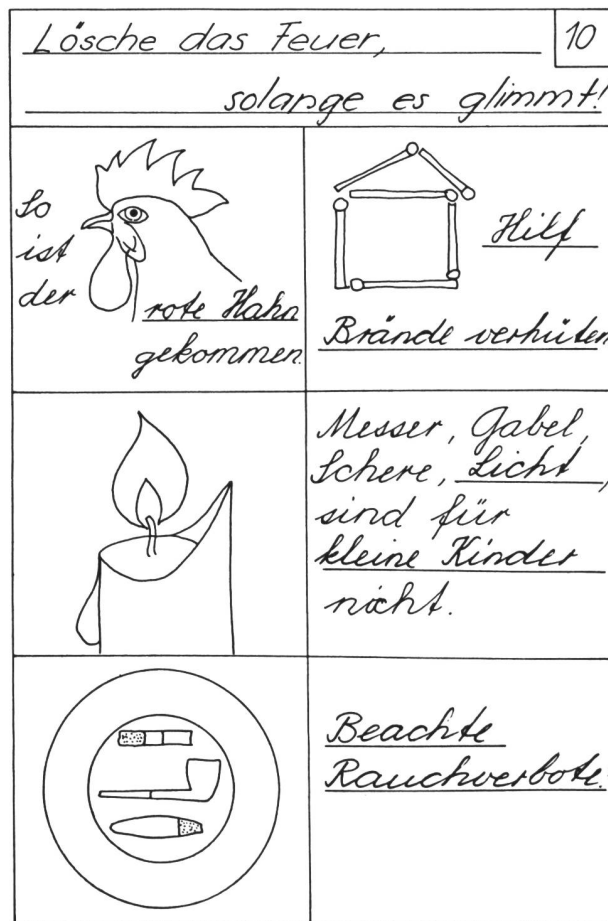 Lösche das Feuer,
10
solange es glimmt!
So
ist
der
rote Hahn
gekommen.
Hilf
Brände verhüten
Messer, Gabel,
Schere, Licht,
sind für
kleine Kinder
nicht.
Beachte
Rauchverbote.